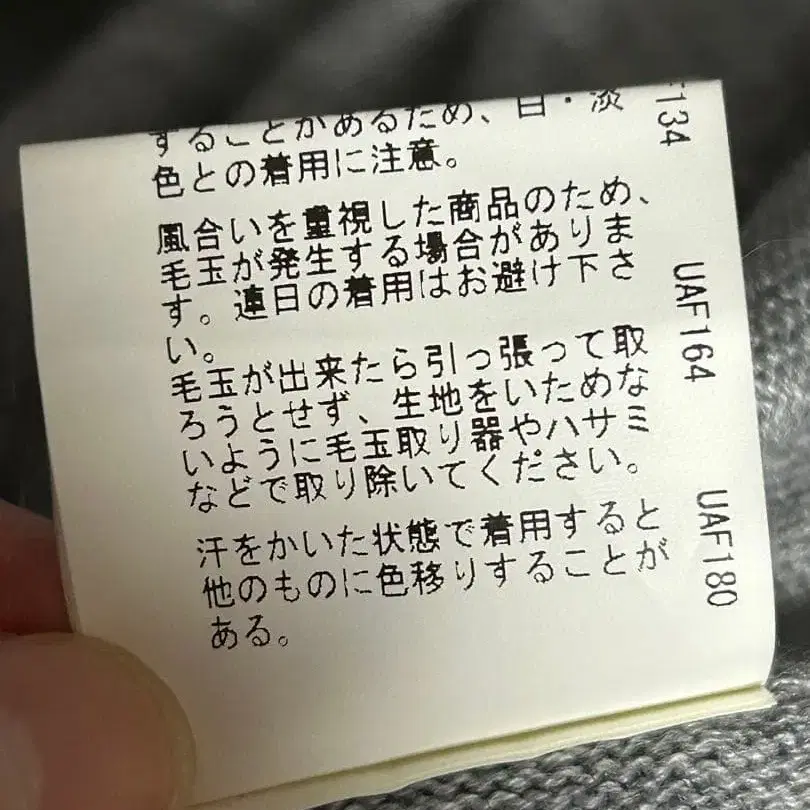 することがあるため、白・淡
色との着用に注意。
風合いを重視した商品のため、
毛玉が発生する場合がありま
す。連日の着用はお避け下さ
い。
毛玉が出来たら引っ張って取
ろうとせず、生地をいためな
いように毛玉取り器やハサミ
などで取り除いてください。
汗をかいた状態で着用すると
他のものに色移りすることが
ある。
134
UAF164
UAF180